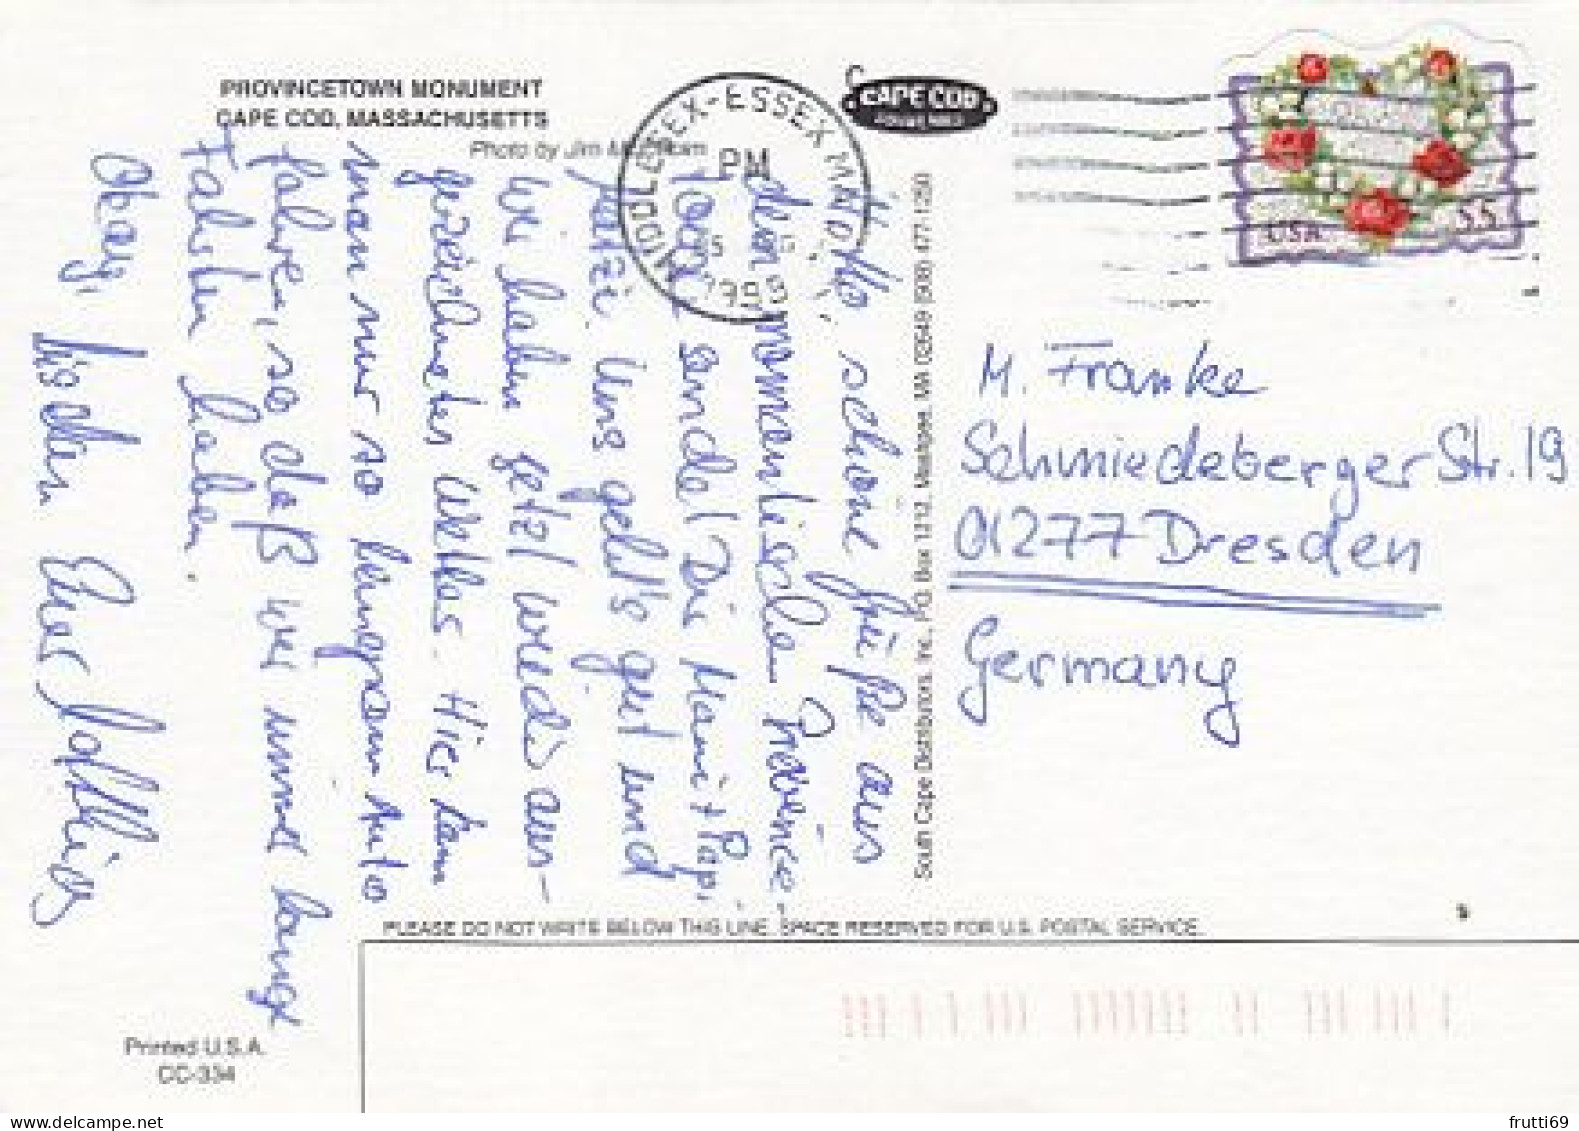 PROVINCETOWN MONUMENT
CAPE COD, MASSACHUSETTS
Photo by Jim
CAPE COD
MIDDLESEX-ESSEX MA
PM
1999
USA
55
Hallo, schöne Grüße aus
dem romantischen Province-
town sendet Dir Mami + Papi
Uns geht's gut und
wir haben jetzt wieder aus-
gezeichnetes Wetter. Hier kann
man nur so langsam Auto
fahren, so daß wir immer lange
Fahrten haben.
Okay, bis dann Euer
M. Franke
Schmiedeberger Str. 19
01277 Dresden
Germany
South Cape Distributors, Inc., P.O. Box 1212, Mashpee, MA 02649 (508) 477-1250
PLEASE DO NOT WRITE BELOW THIS LINE. SPACE RESERVED FOR U.S. POSTAL SERVICE.
Printed U.S.A.
CC-334
frutti69